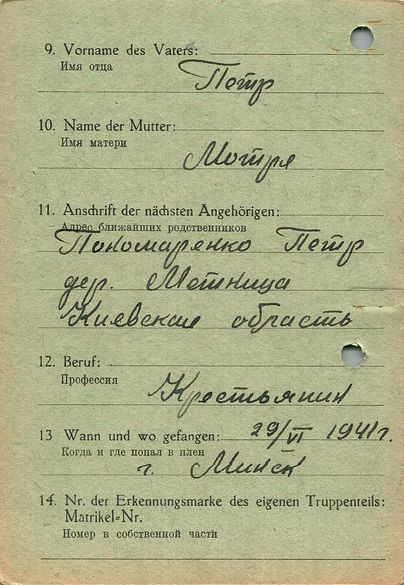 9. Vorname des Vaters:
Имя отца
Петр
10. Name der Mutter:
Имя матери
Мотря
11. Anschrift der nächsten Angehörigen:
Адрес ближайших родственников
Пономаренко Петр
дер. Метница
Киевская область
12. Beruf:
Профессия
Крестьянин
13 Wann und wo gefangen: 29/VI 1941г.
Когда и где попал в плен
г. Минск
14. Nr. der Erkennungsmarke des eigenen Truppenteils:
Matrikel-Nr.
Номер в собственной части